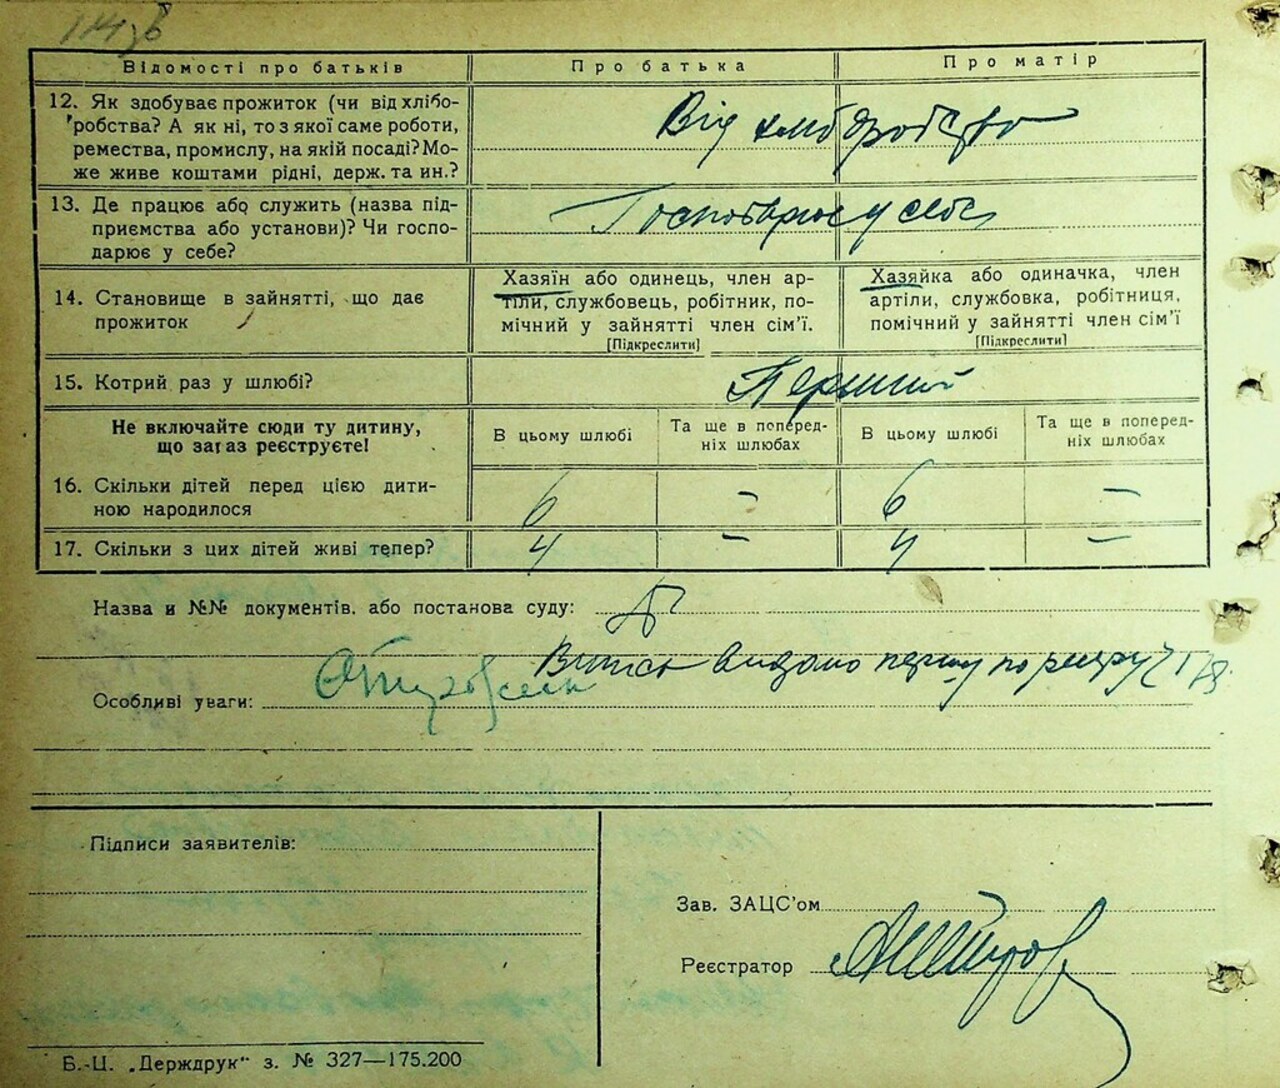 Відомості про батьків
Про батька
Про матір
12. Як здобуває прожиток (чи від хлібо-
робства? А як ні, то з якої саме роботи,
ремества, промислу, на якій посаді? Мо-
же живе коштами рідні, держ. та ин.?
Від хліборобства
13. Де працює або служить (назва під-
приємства або установи)? Чи госпо-
дарює у себе?
Господарює у себе
14. Становище в зайнятті, що дає
прожиток
Хазяїн або одинець, член ар-
тіли, службовець, робітник, по-
мічний у зайнятті член сім'ї.
[Підкреслити]
Хазяйка або одиначка, член
артіли, службовка, робітниця,
помічний у зайнятті член сім'ї
[Підкреслити]
15. Котрий раз у шлюбі?
Перший
Не включайте сюди ту дитину,
що зараз реєструєте!
В цьому шлюбі
Та ще в поперед-
ніх шлюбах
В цьому шлюбі
Та ще в поперед-
ніх шлюбах
16. Скільки дітей перед цією дити-
ною народилося
6 — 6 —
17. Скільки з цих дітей живі тепер?
4 — 4 —
Назва и №№ документів. або постанова суду:
Випис видано першу по реєстру
Особливі уваги:
Підписи заявителів:
Зав. ЗАЦС'ом
Реєстратор
Б.-Ц. „Держдрук" з. № 327—175.200